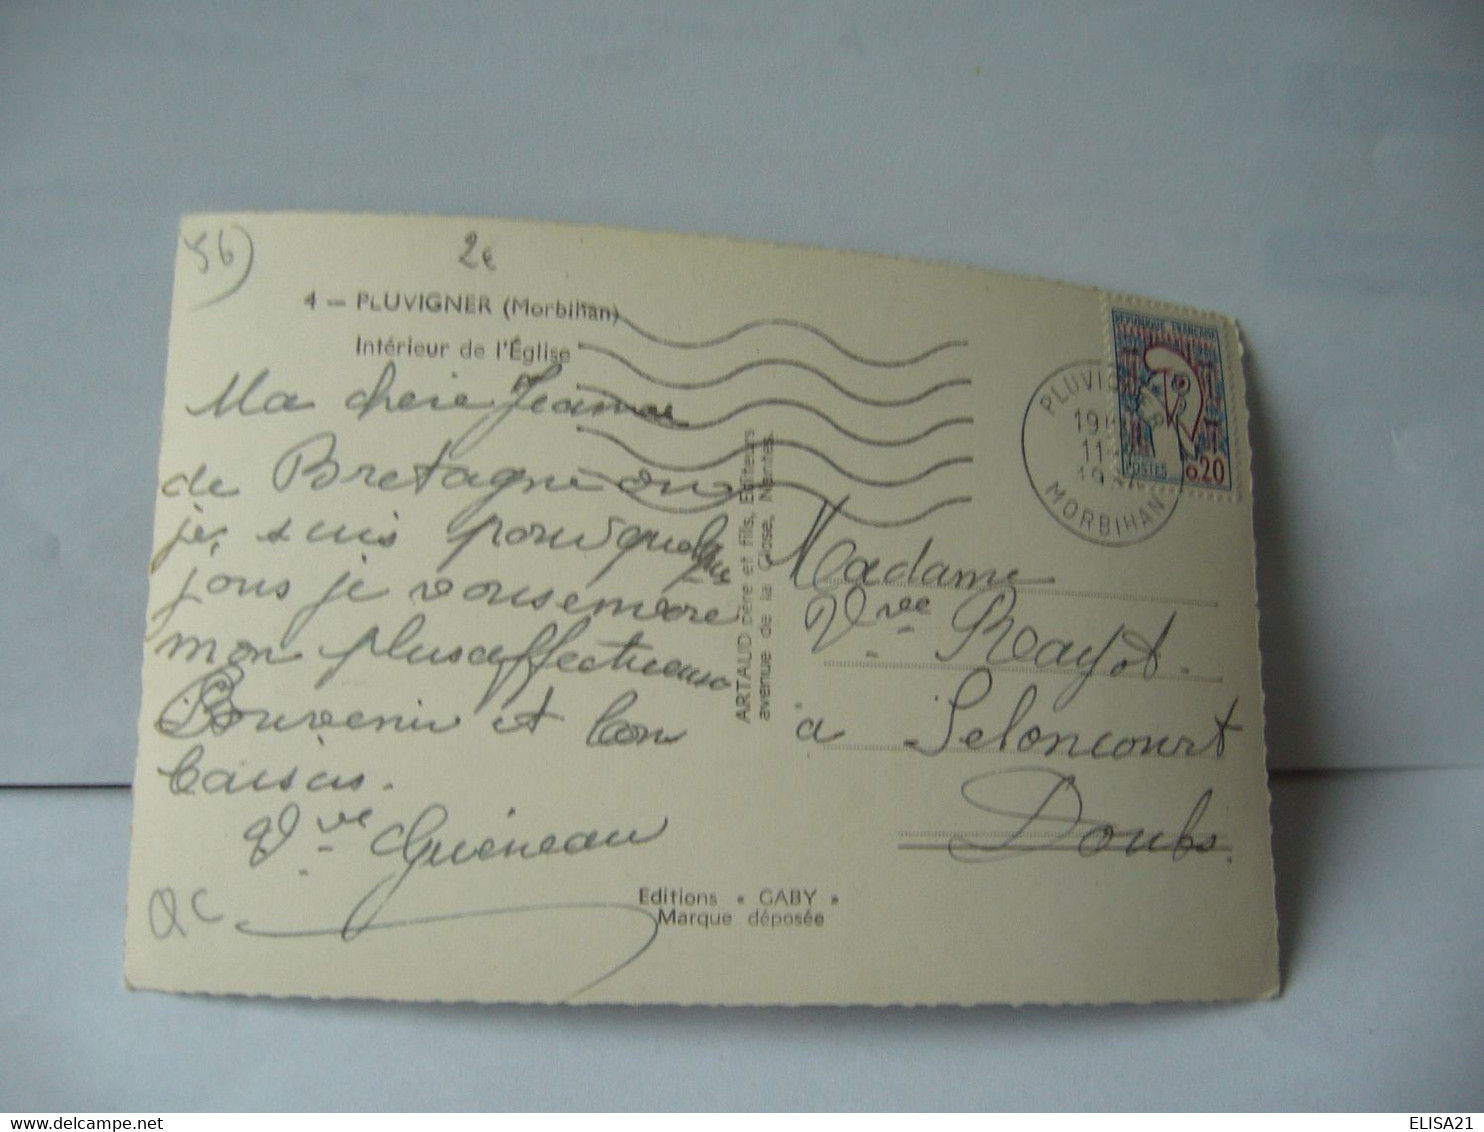 56)
2€
4 — PLUVIGNER (Morbihan)
Intérieur de l'Église
Ma chère Jeanne
de Bretagne ou
je suis pour quelque
jous je vous envoie
mon plus affectueux
Souvenir et bon
baisers.
Vve Guéneau
QC
ARTAUD père et fils, Editeurs
avenue de la Close, Nantes.
Editions « GABY »
Marque déposée
RÉPUBLIQUE FRANÇAISE
POSTES 0,20
PLUVIGNER
11
MORBIHAN
Madame
Vve
à Seloncourt
Doubs.
ELISA21